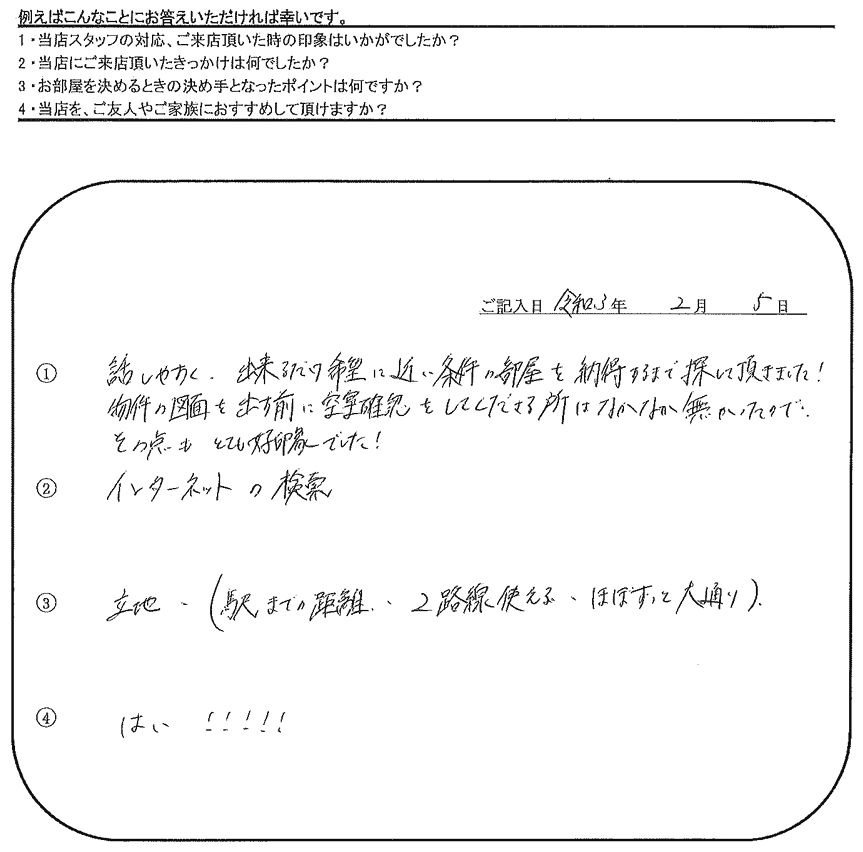 例えばこんなことにお答えいただければ幸いです。
1・当店スタッフの対応、ご来店頂いた時の印象はいかがでしたか？
2・当店にご来店頂いたきっかけは何でしたか？
3・お部屋を決めるときの決め手となったポイントは何ですか？
4・当店を、ご友人やご家族におすすめして頂けますか？
ご記入日 令和3年 2月 5日
① 話しやすく、出来るだけ希望に近い条件の部屋を納得するまで探して頂きました！
物件の図面を出す前に空室確認をしてくださる所はなかなか無かったので、
その点もとても好印象でした！
② インターネットの検索
③ 立地、(駅までの距離、、2路線使える、ほぼずっと大通り)、
④ はい !!!!!